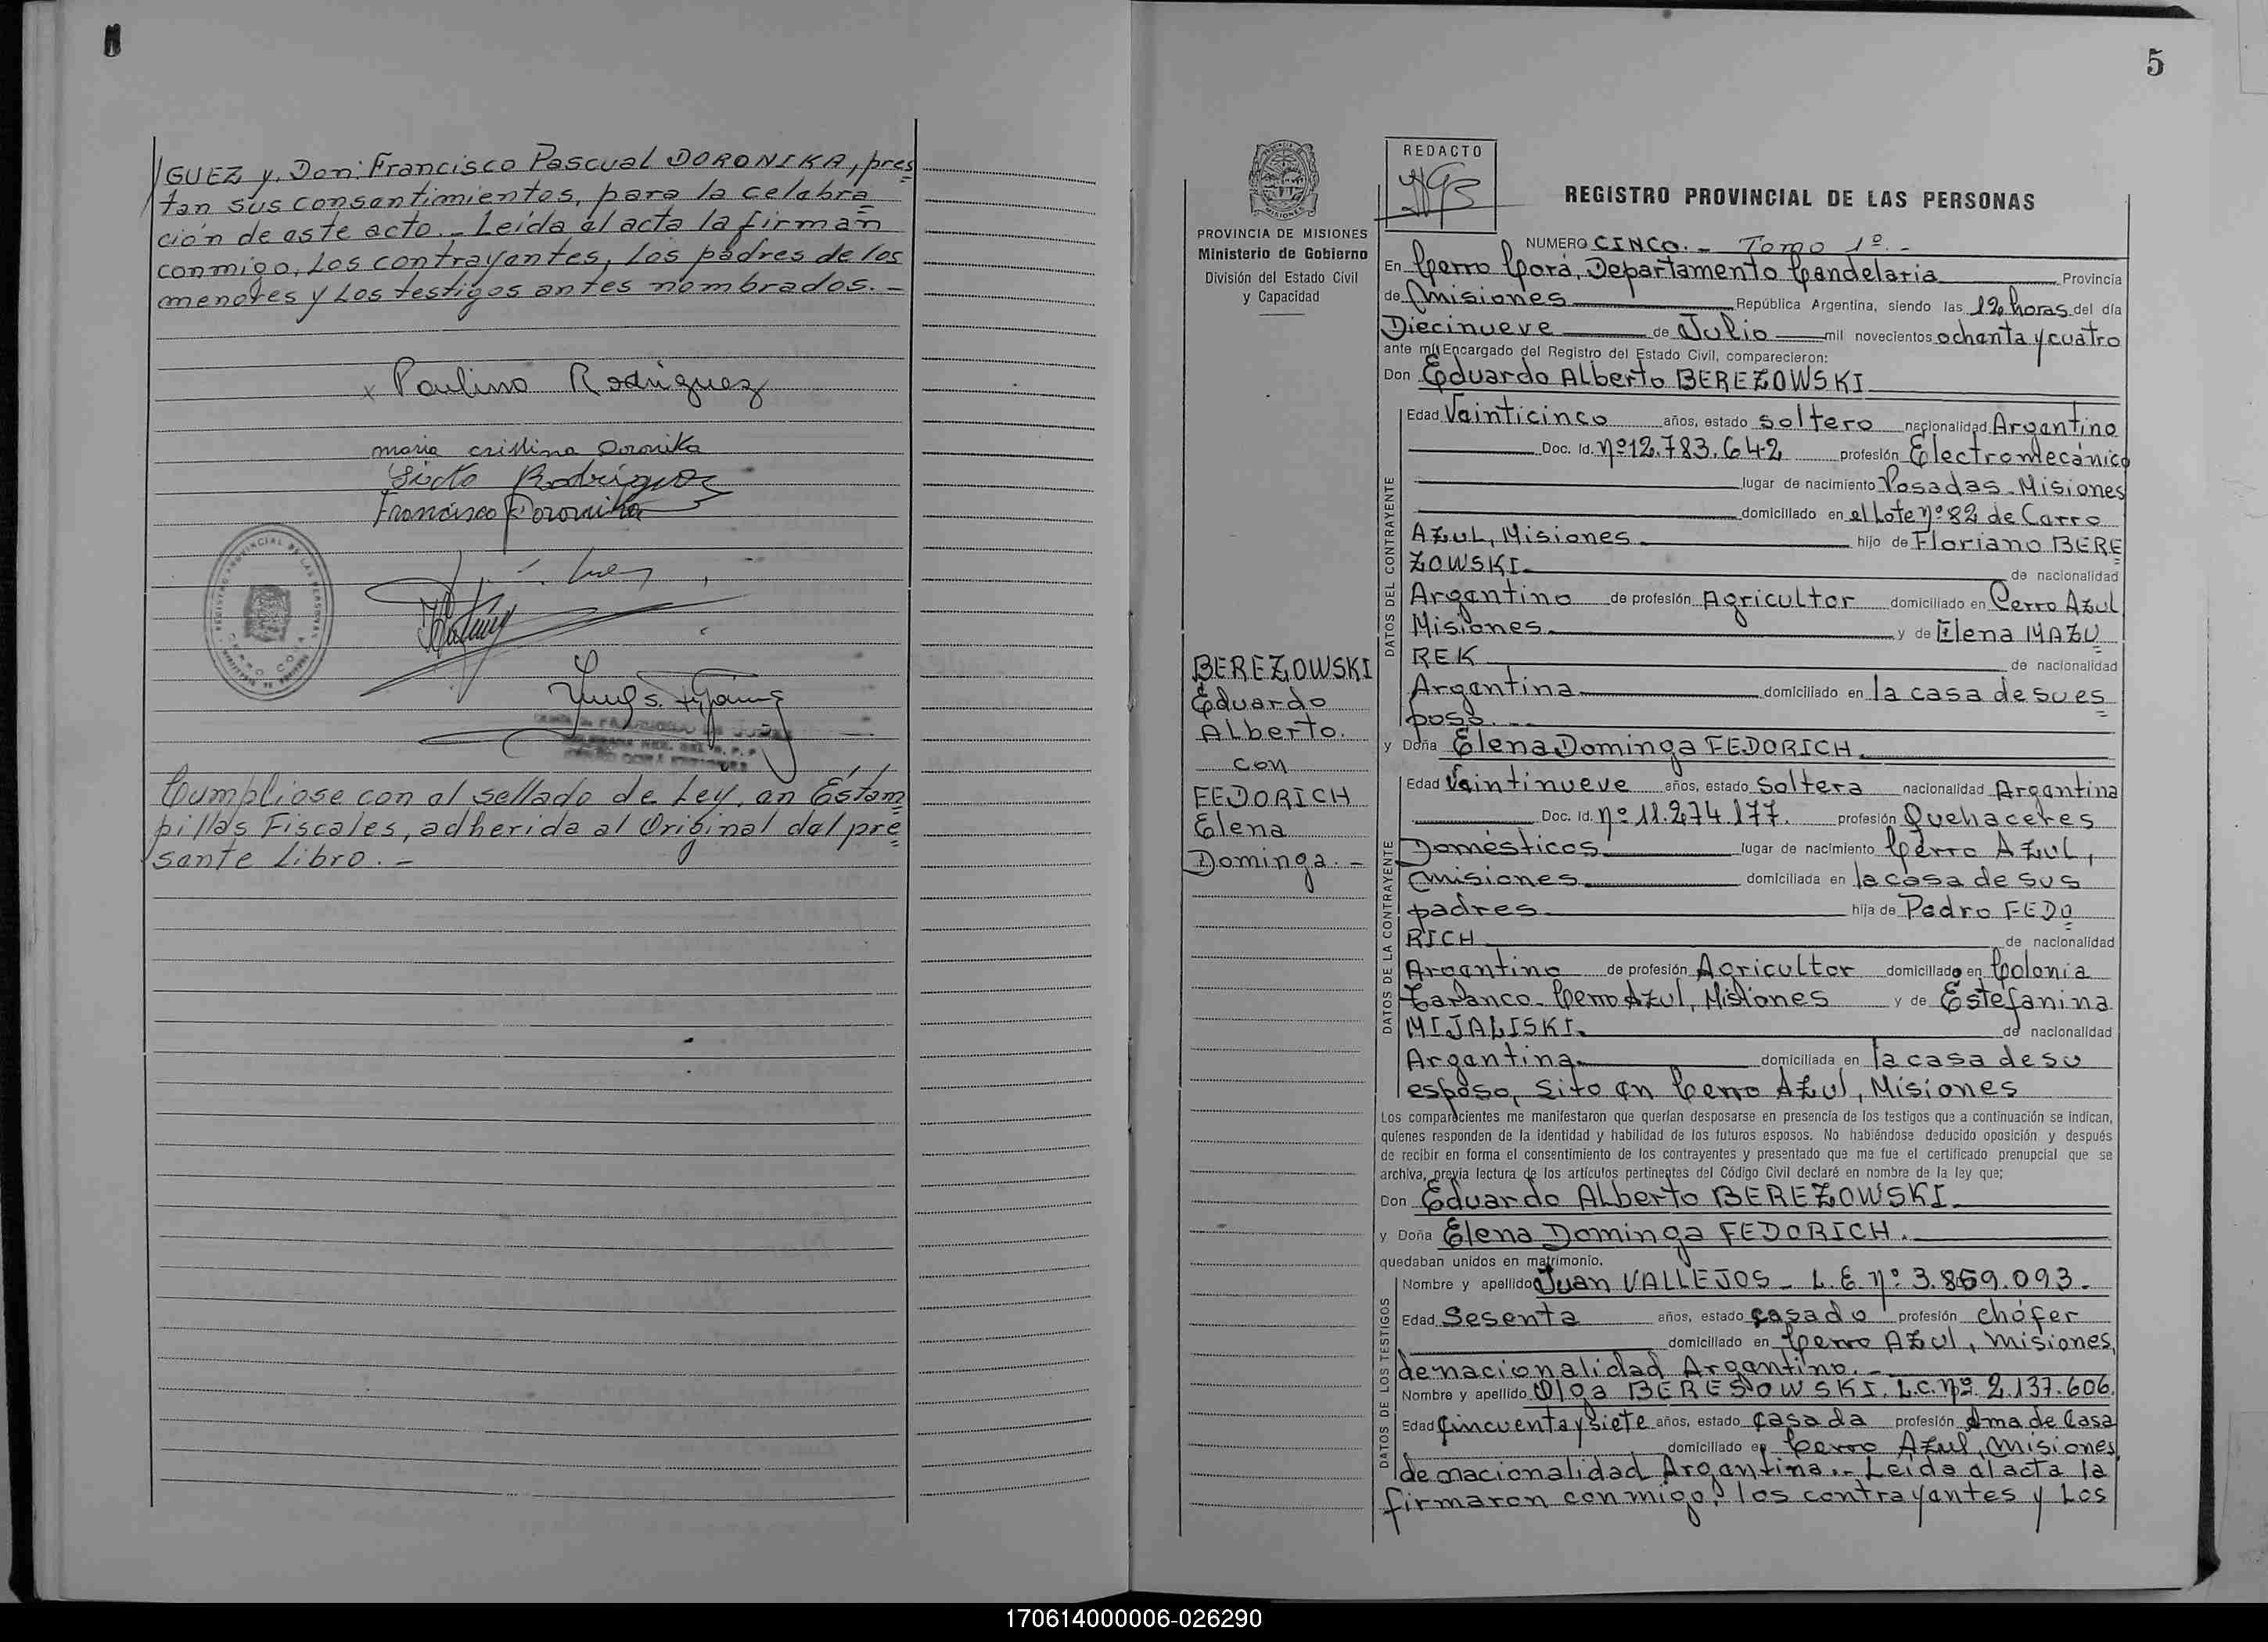 GUEZ y. Don: Francisco Pascual DORONIKA, pres
tan sus consentimientos, para la celebra
ción de este acto.- Leída el acta la firman
conmigo, Los contrayentes, los padres de los
menores y Los testigos antes nombrados. -
x Paulino Rodriguez
maria cristina Doronika
Sixto Rodríguez
Francisco Doronika
Cumpliose con el sellado de Ley, en Éstam
pillas Fiscales, adherida al Original del pre
sente Libro. -
5
REDACTO
REGISTRO PROVINCIAL DE LAS PERSONAS
PROVINCIA DE MISIONES
Ministerio de Gobierno
División del Estado Civil
y Capacidad
BEREZOWSKI
Eduardo
Alberto.
con
FEDORICH
Elena
Dominga. -
NUMERO CINCO. - Tomo 1º. -
En Cerro Corá, Departamento Candelaria Provincia
de Misiones República Argentina, siendo las 12 horas del día
Diecinueve de Julio mil novecientos ochenta y cuatro
ante mí Encargado del Registro del Estado Civil, comparecieron:
Don Eduardo Alberto BEREZOWSKI
DATOS DEL CONTRAYENTE
Edad Veinticinco años, estado soltero nacionalidad Argentino
Doc. Id. nº 12.783.642 profesión Electromecánico
lugar de nacimiento Posadas - Misiones
domiciliado en el Lote nº 82 de Cerro
AZUL, Misiones. hijo de Floriano BERE
ZOWSKI. de nacionalidad
Argentino de profesión Agricultor domiciliado en Cerro Azul
Misiones. y de Elena MAZU
REK de nacionalidad
Argentina domiciliado en la casa de su es
poso. --
y Doña Elena Dominga FEDORICH.
DATOS DE LA CONTRAYENTE
Edad Veintinueve años, estado Soltera nacionalidad Argentina
Doc. Id. nº 11.274.177. profesión Quehaceres
Domésticos lugar de nacimiento Cerro AZUL,
Misiones domiciliada en la casa de sus
padres hija de Pedro FEDO
RICH de nacionalidad
Argentino de profesión Agricultor domiciliado en Colonia
Taranco - Cerro Azul, Misiones y de Estefanina
MIJALISKI. de nacionalidad
Argentina domiciliada en la casa de su
esposo, Sito en Cerro AZul, Misiones
Los comparecientes me manifestaron que querían desposarse en presencia de los testigos que a continuación se indican,
quienes responden de la identidad y habilidad de los futuros esposos. No habiéndose deducido oposición y después
de recibir en forma el consentimiento de los contrayentes y presentado que me fue el certificado prenupcial que se
archiva, previa lectura de los artículos pertinentes del Código Civil declaré en nombre de la ley que;
Don Eduardo Alberto BEREZOWSKI.
y Doña Elena Dominga FEDORICH.
quedaban unidos en matrimonio.
DATOS DE LOS TESTIGOS
Nombre y apellido Juan VALLEJOS - L.E. nº 3.869.093.
Edad Sesenta años, estado casado profesión chófer
domiciliado en Cerro AZul, Misiones,
de nacionalidad Argentino. -
Nombre y apellido Olga BERESOWSKI. L.C. nº 2.137.606.
Edad Cincuenta y siete años, estado casada profesión Ama de Casa
domiciliado en Cerro Azul, Misiones,
de nacionalidad Argentina. - Leída el acta la
firmaron conmigo, los contrayentes y Los
170614000006-026290